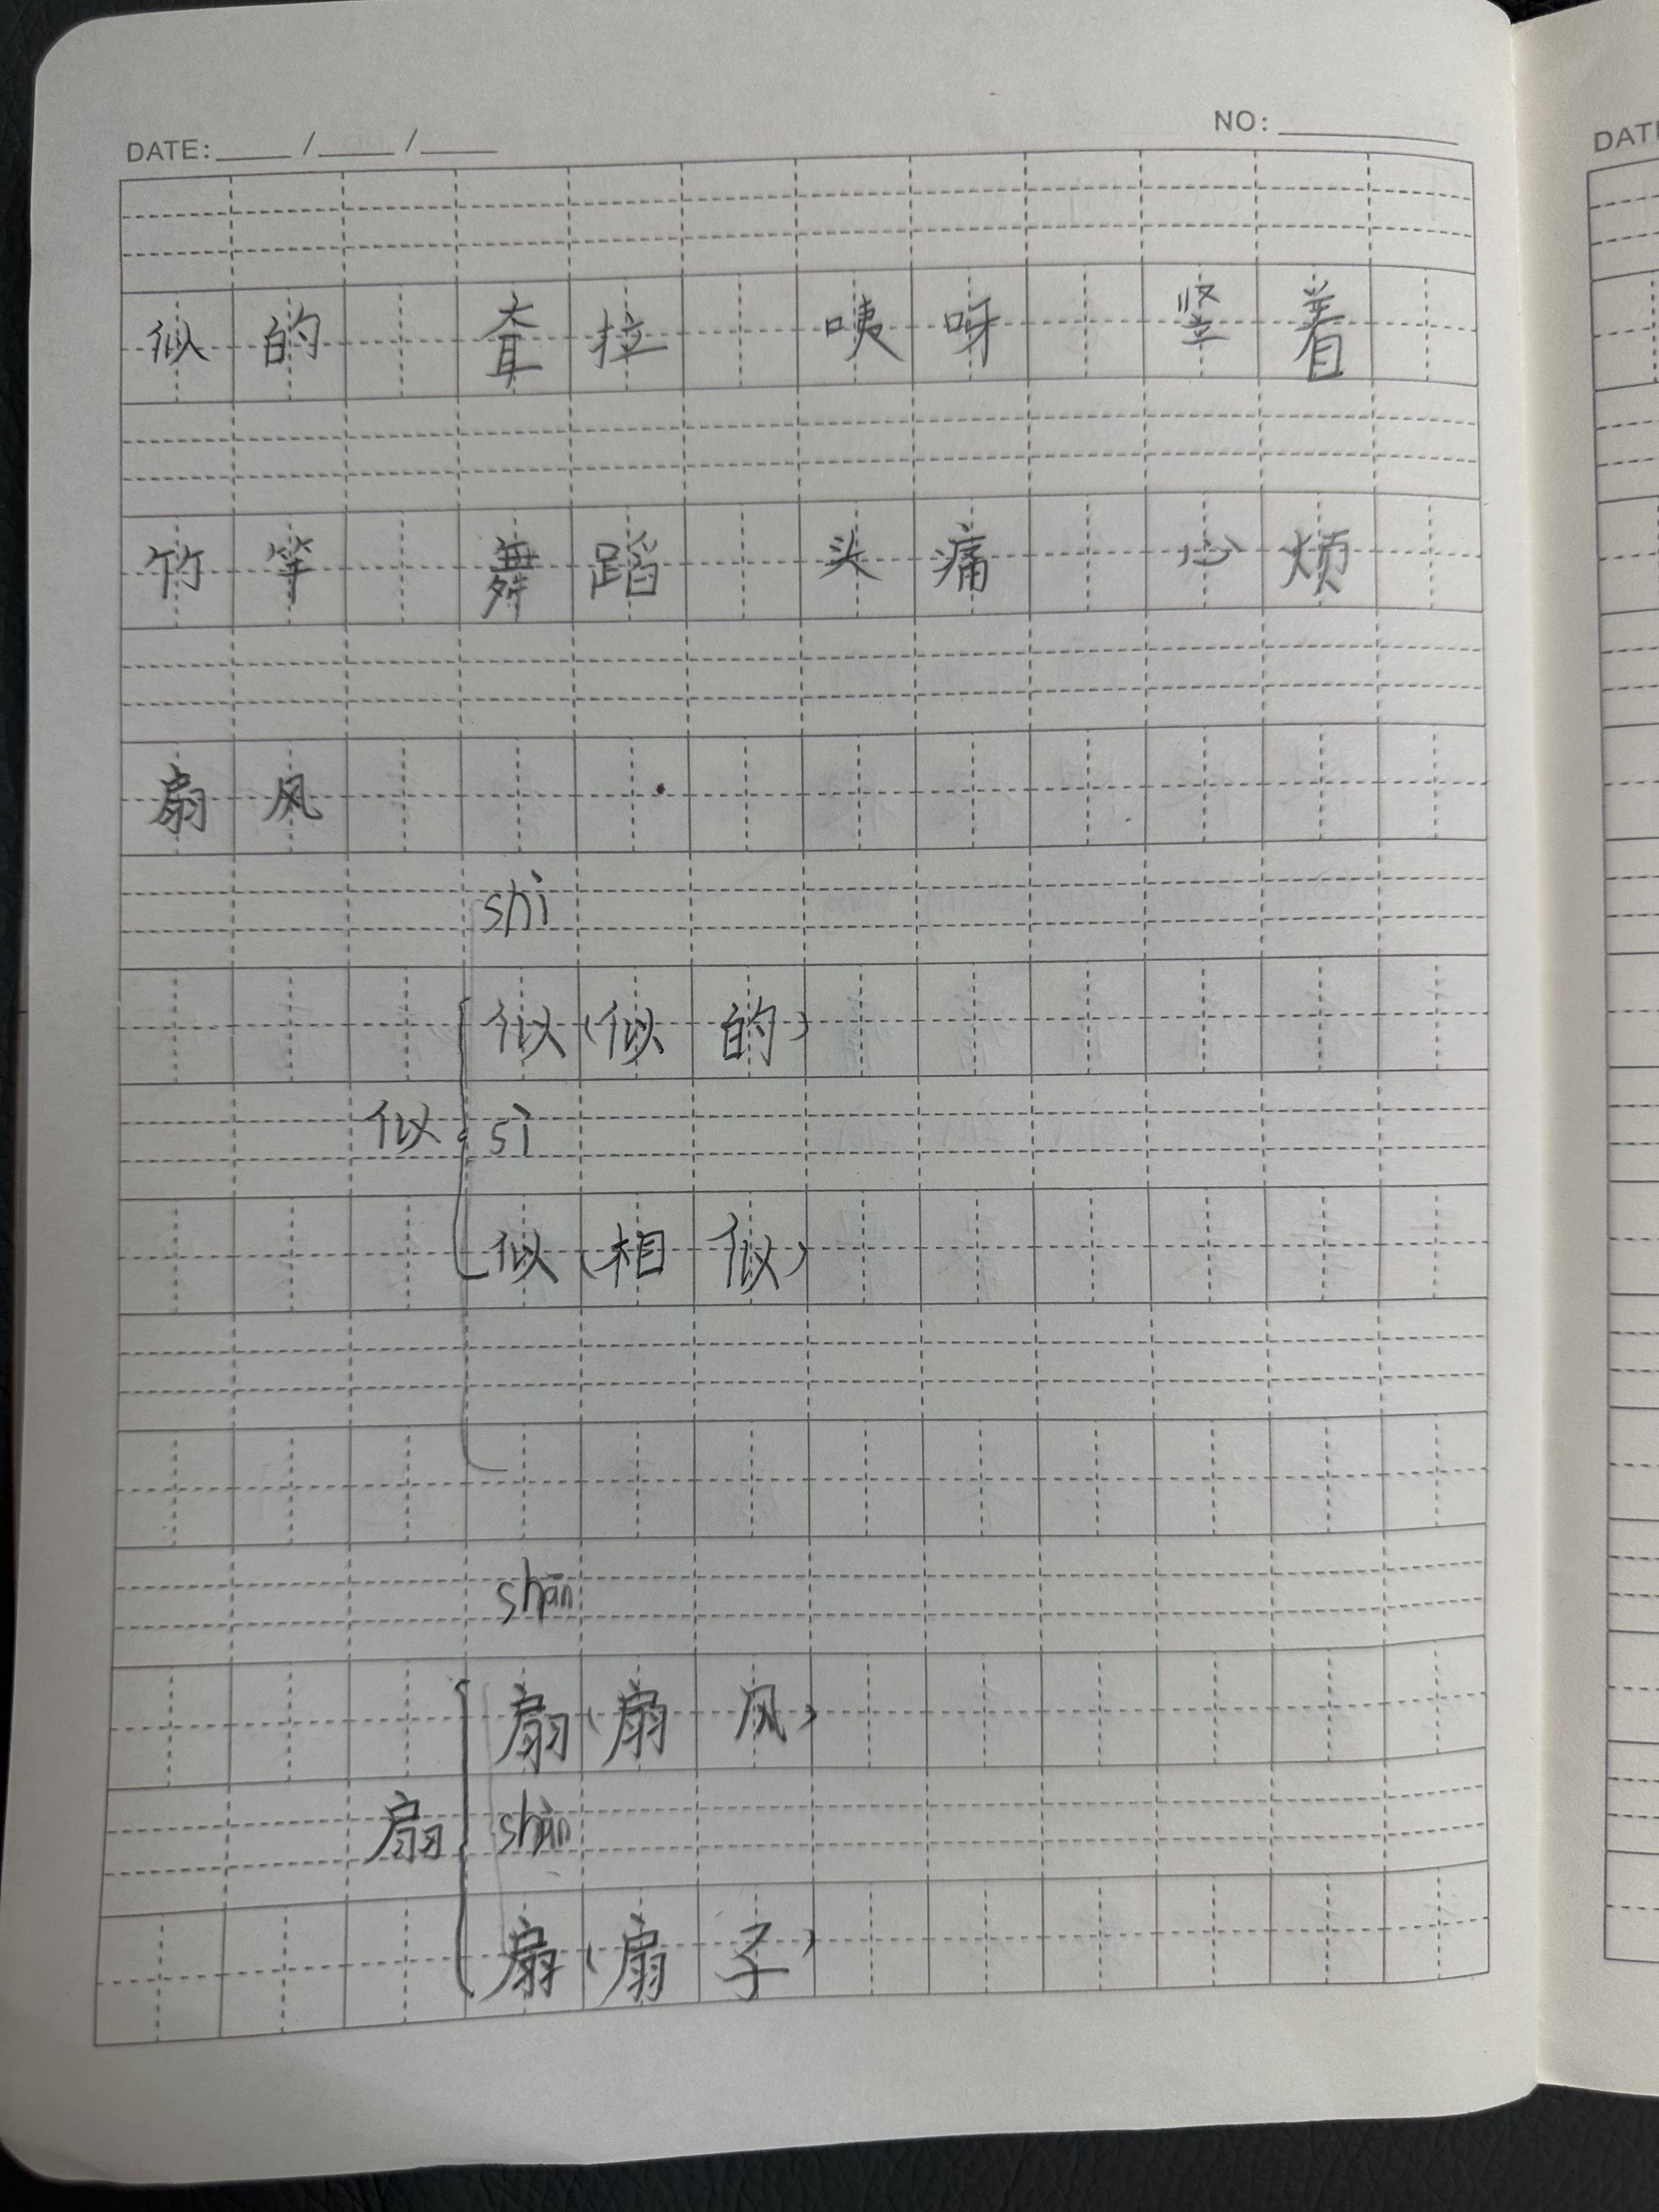 DATE: / / NO:
似的 耷拉 咦呀 竖着
竹竿 舞蹈 头痛 心烦
扇风
shì
似(似的)
似 sì
似(相似)
shān
扇(扇风)
扇 shàn
扇(扇子)